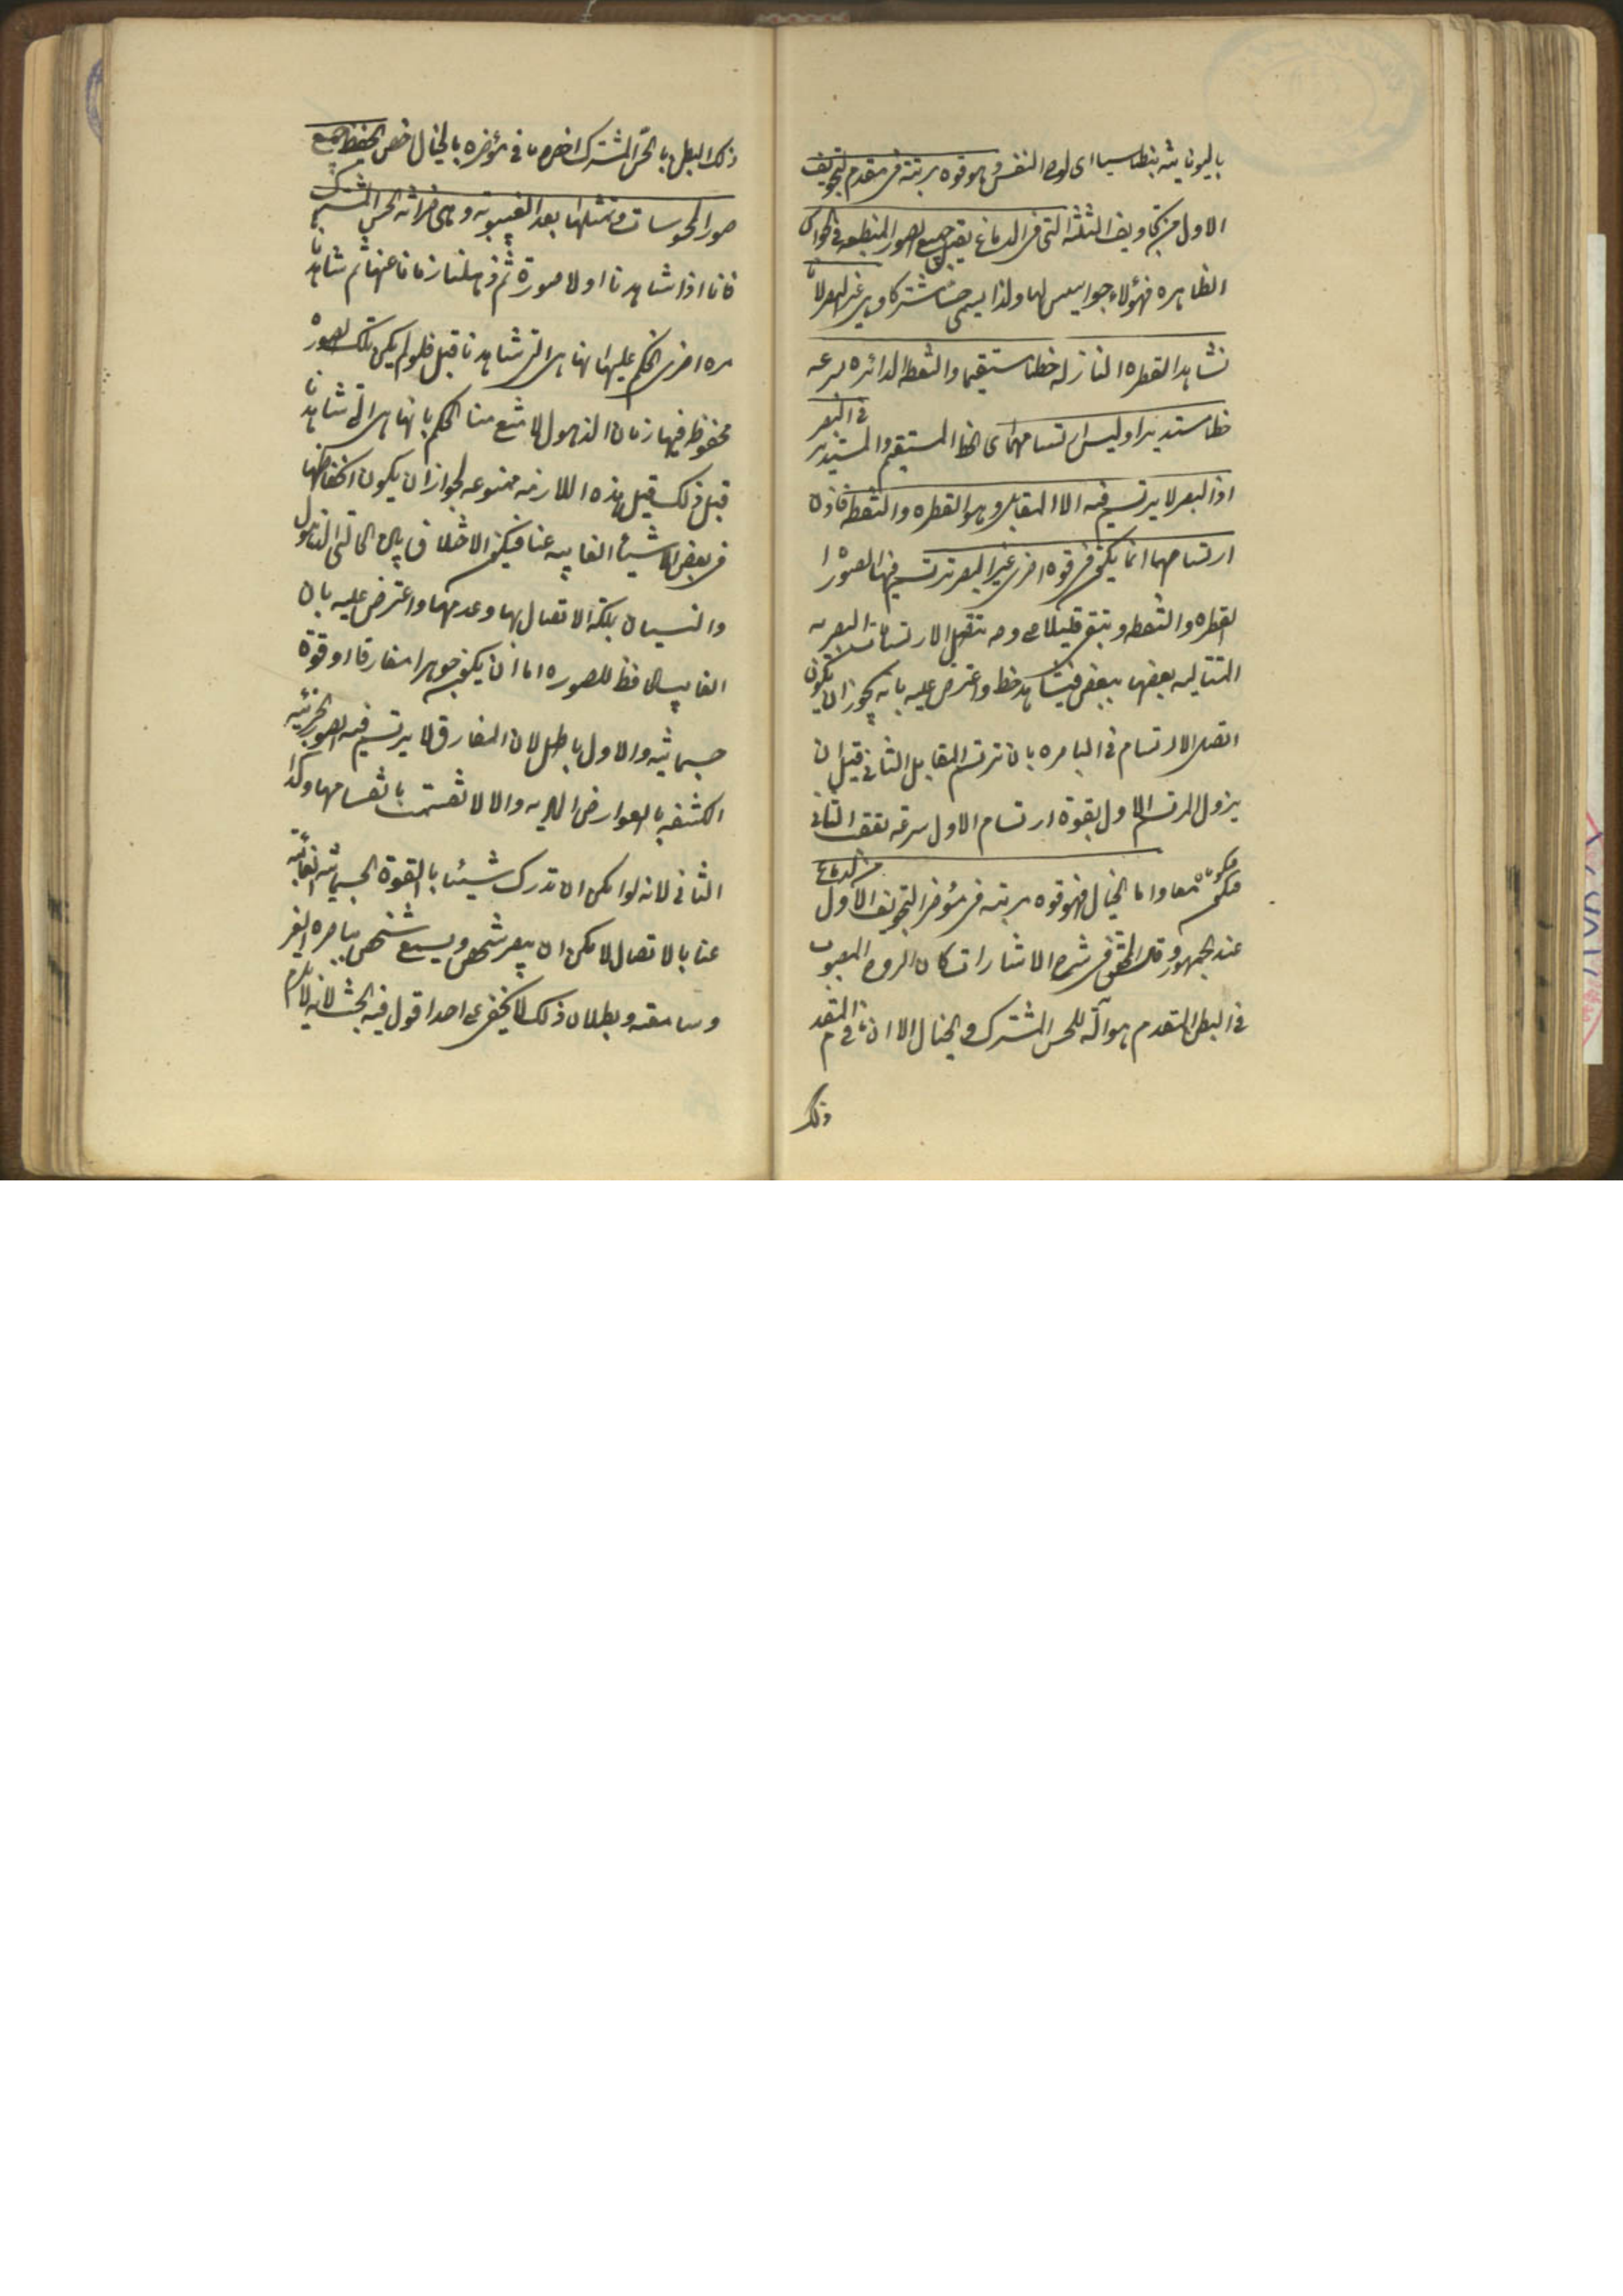 باليونانية بنطاسيا اى لوح النفس وهو قوه مرتبة فى مقدم التجويف
الاول من التجاويف الثلثة التى فى الدماغ يقبل جميع الصور المنطبعه فى الحواس
الظاهره فهؤلاء جواسيس لها ولذا يسمى حسا مشتركا وهى غير البصر لانا
نشاهد القطره النازله خطا مستقيما والنقطه الدائره بسرعه
خطا مستديرا وليس ارتسامهما اى الخط المستقيم والمستدير فى البصر
اذ البصر لا يرتسم فيه الا المقابل وهو القطره والنقطه فاذن
ارتسامهما انما يكون فى قوه اخرى غير البصر ترتسم فيها صورة
القطره والنقطه وتبقى قليلا على وجه تتصل الارتسامات البصريه
المتتاليه بعضها ببعض فيشاهد خط واعترض عليه بانه يجوز ان يكون
اتصال الارتسام فى الباصره بان يرتسم المقابل الثانى قبل ان
يزول المرتسم الاول بقوة ارتسام الاول وسرعة تعقب الثانى
فيكونان معا واما الخيال فهو قوه مرتبه فى مؤخر التجويف الاول من الدماغ
عند الجمهور وقال المحقق فى شرح الاشارات كان الروح المصبوب
فى البطن المقدم هو آلة للحس المشترك والخيال الا ان ما فى مقدم
ذلك
ذلك البطن بالحس المشترك اخص وما فى مؤخره بالخيال اخص يحفظ جميع
صور المحسوسات وتمثلها بعد الغيبوبة وهى خزانة الحس المشترك
فانا اذا شاهدنا اولا صورة ثم ذهلنا زمانا عنها ثم شاهدنا
مره اخرى نحكم عليها انها هى التى شاهدنا قبل فلو لم يكن تلك الصورة
محفوظه فيها زمان الذهول لامتنع منا الحكم بانها هى التى شاهدنا
قبل ذلك قيل هذه الملازمه ممنوعه لجواز ان يكون انحفاظها
فى بعض الاشياء الغايبه عنا فيكون الاختلاف بين حالتى الذهول
والنسيان بملكة الاتصال بها وعدمها واعترض عليه بان
الغايب الحافظ للصوره اما ان يكون جوهرا مفارقا او قوة
جسمانية والاول باطل لان المفارق لا يرتسم فيه الصور الجزئيه
المكتنفه بالعوارض الماديه والا لانقسمت بانقسامها وكذا
الثانى لانه لو امكن ان تدرك شيئا بالقوة الجسمانية الغايبة
عنا بالاتصال لامكن ان يبصر شخص ويسمع شخص بباصره الغير
وسامعته وبطلان ذلك لا يخفى على احد اقول فيه بحث لانه لا يلزم